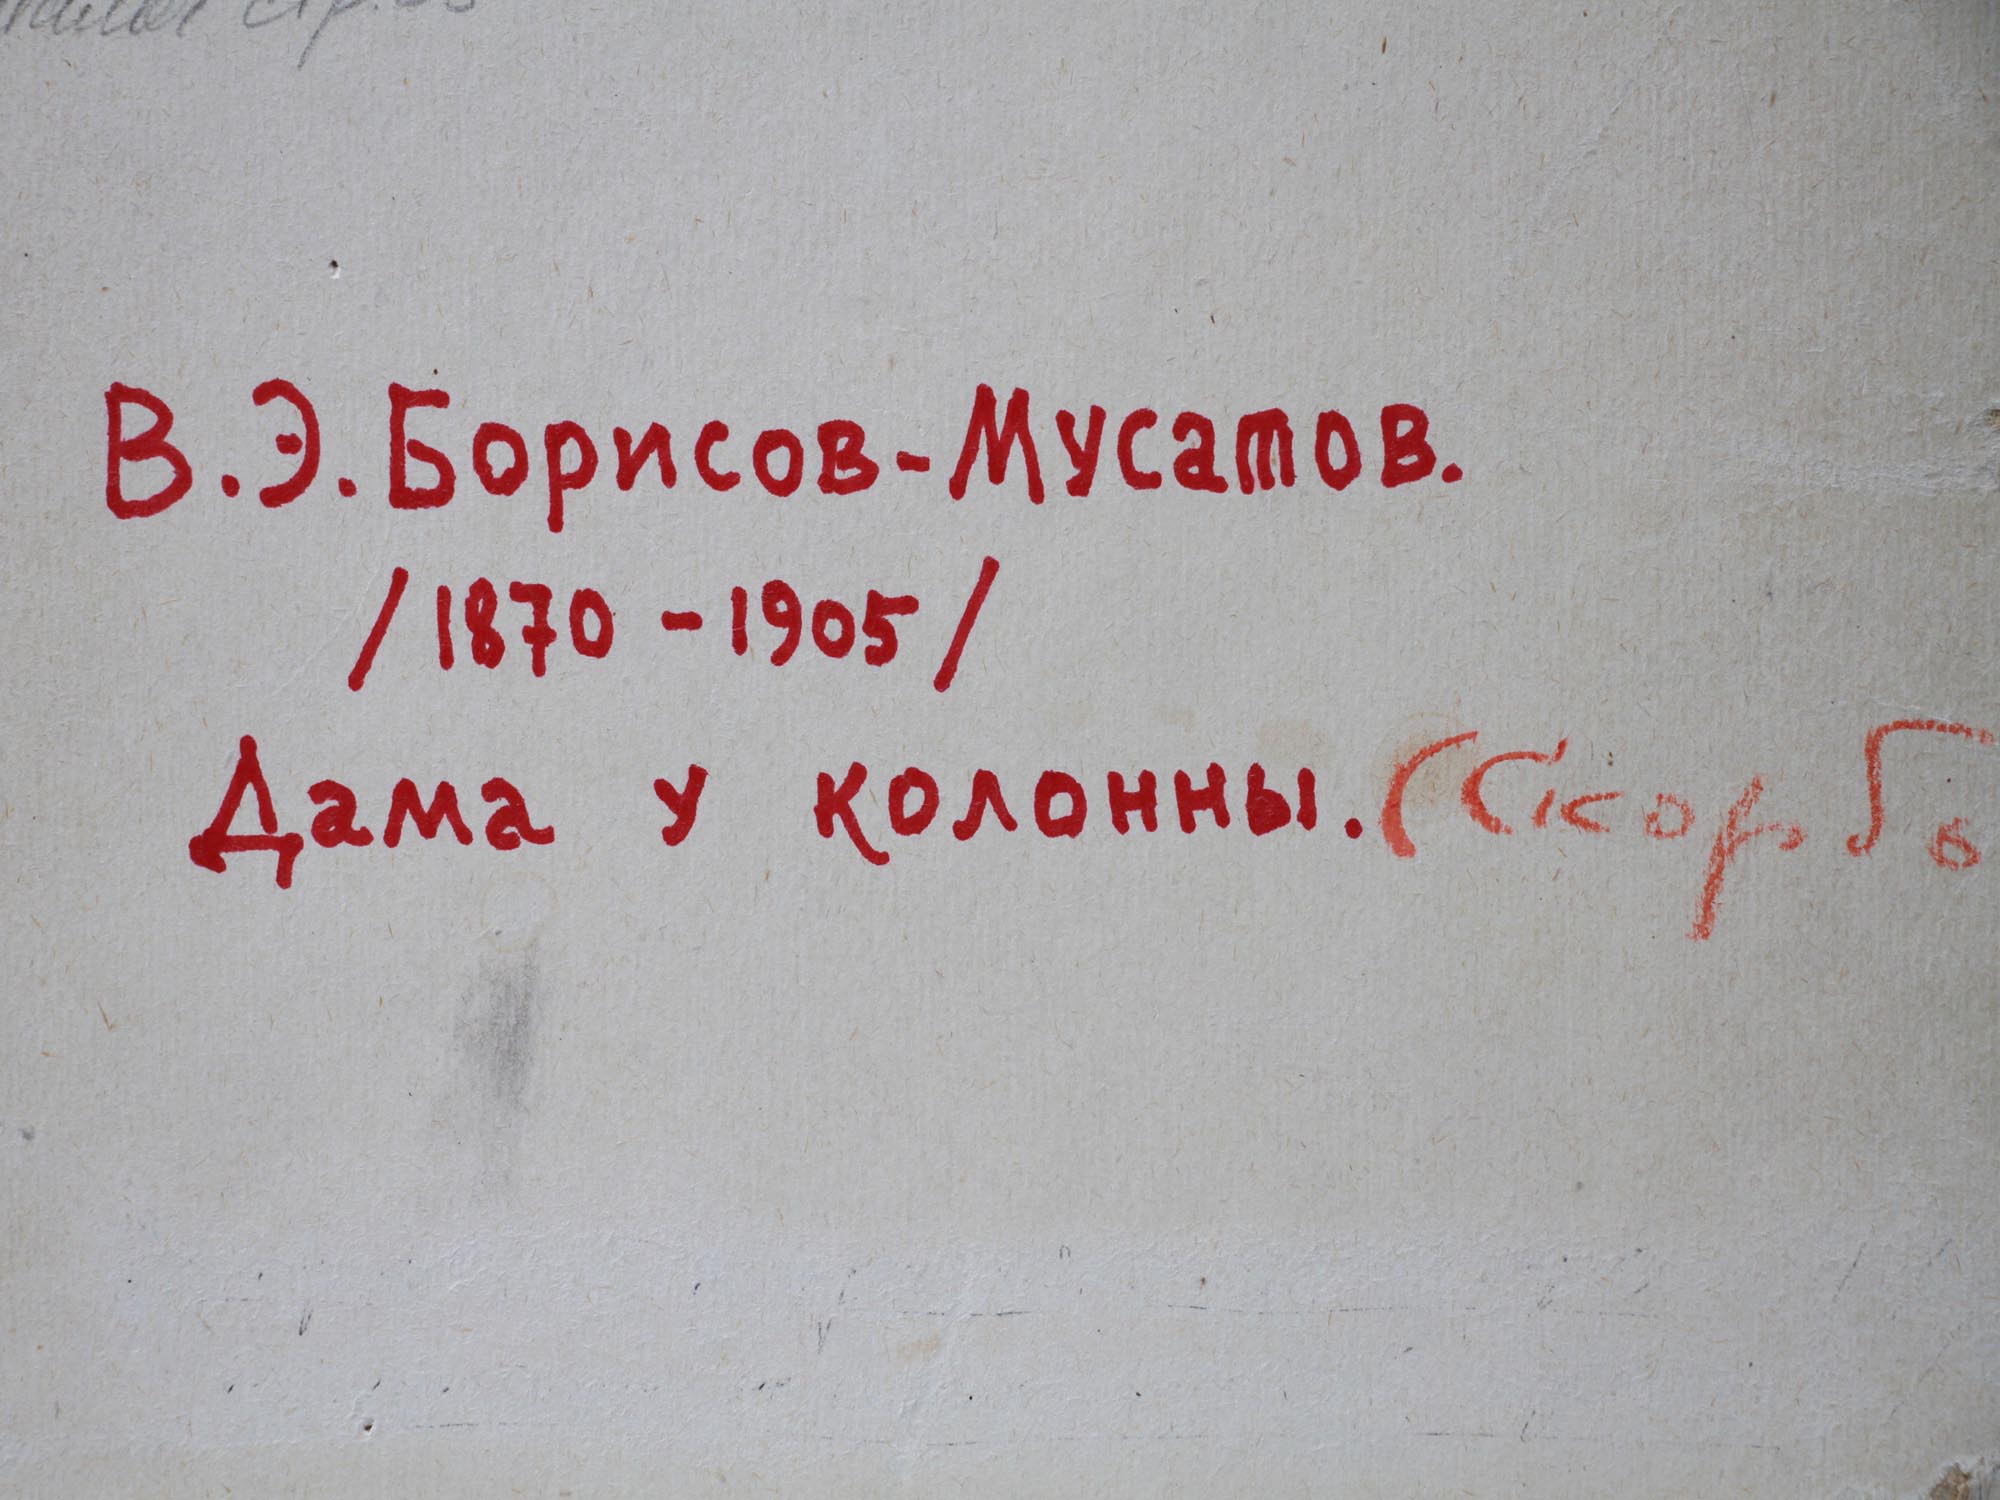 стр.
В.Э.Борисов-Мусатов.
/1870-1905/
Дама у колонны. (Скорбь